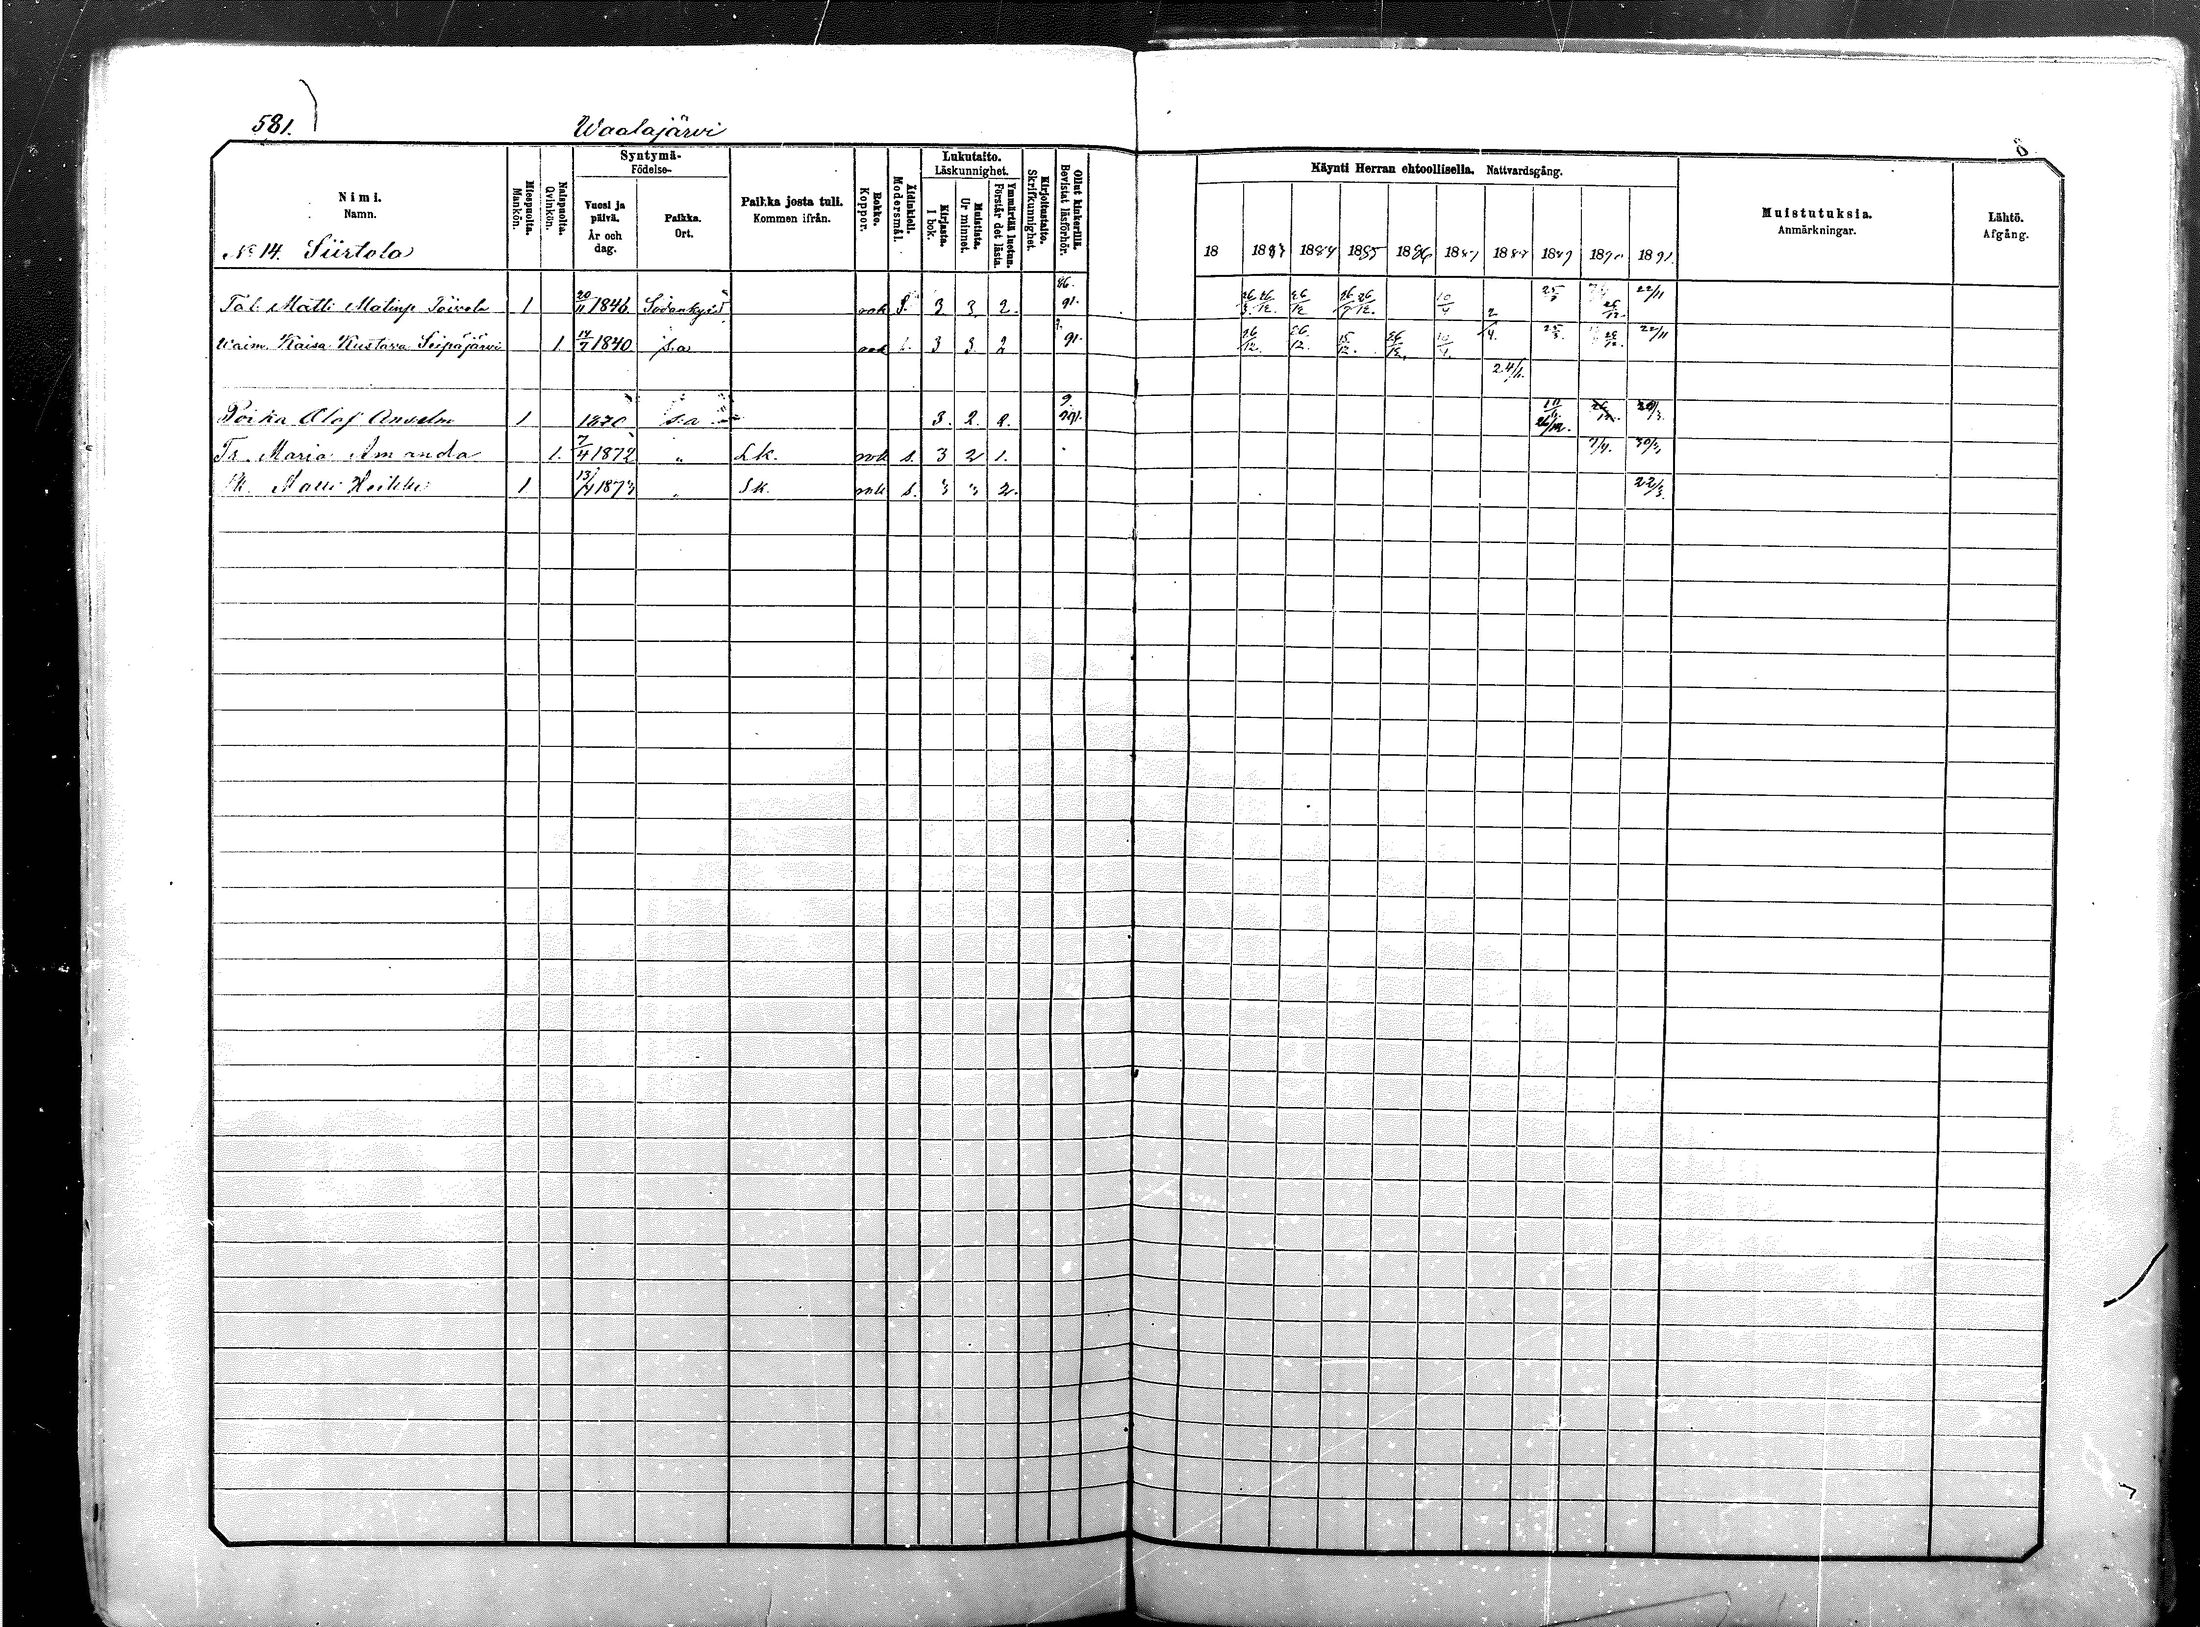 581.
Waalajärvi
Nimi.
Namn.
Miespuolta.
Mankön.
Naispuolta.
Qvinkön.
Syntymä-
Födelse-
Vuosi ja
päivä.
År och
dag.
Paikka.
Ort.
Paikka josta tuli.
Kommen ifrån.
Rokko.
Koppor.
Äidinkieli.
Modersmål.
Lukutaito.
Läskunnighet.
Kirjasta.
I bok.
Muistista.
Ur minnet.
Ymmärtää luetun.
Förstår det lästa.
Kirjoitustaito.
Skrifkunnighet.
Ollut kinkerillä.
Bevistat läsförhör.
Käynti Herran ehtoollisella. Nattvardsgång.
18 1883 1884 1885 1886 1887 1888 1889 1890 1891.
Muistutuksia.
Anmärkningar.
Lähtö.
Afgång.
No 14. Siirtola
Tal. Matti Matinp. 1 20/11 1846 Sodankylä rok S. 3 3 2. 86. 91. 26/3. 26/12. 26/12 26/12. 10/4 2 25/3 26/12. 22/11
Waim. Kaisa Kustava Seipäjärvi 1. 14/7 1840 s:a rok 3 3 2 91. 26/12. 26/12. 15/12. 26/12. 10/4. 4. 25/3 26/12. 22/11
24/6.
Poika Olof Anselm 1 1870 s:a 3. 2. 2. 26/12.
Tr. Maria Amanda 1. 7/4 1872 " Sk. rok s. 3 2 1. 7/4. 30/3
Pk. Matti Heikki 1 13/4 187 " Sk. rok s. 3 3 2. 22/3.